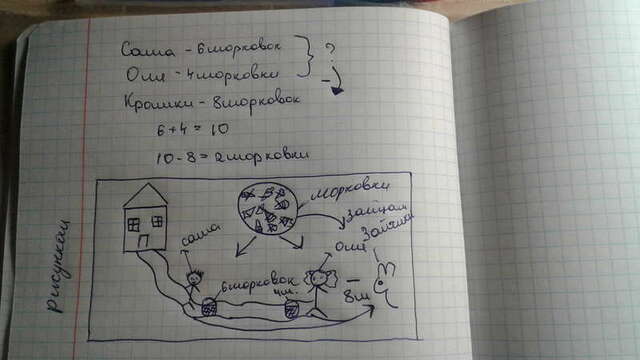 Саша - 6 морковок
Оля - 4 морковки
?
Крошки - 8 морковок
6 + 4 = 10
10 - 8 = 2 морковки
рисунком
морковки
зайцам
Зайчик
саша
Оля
6 морковок
4 м.
- 8 м